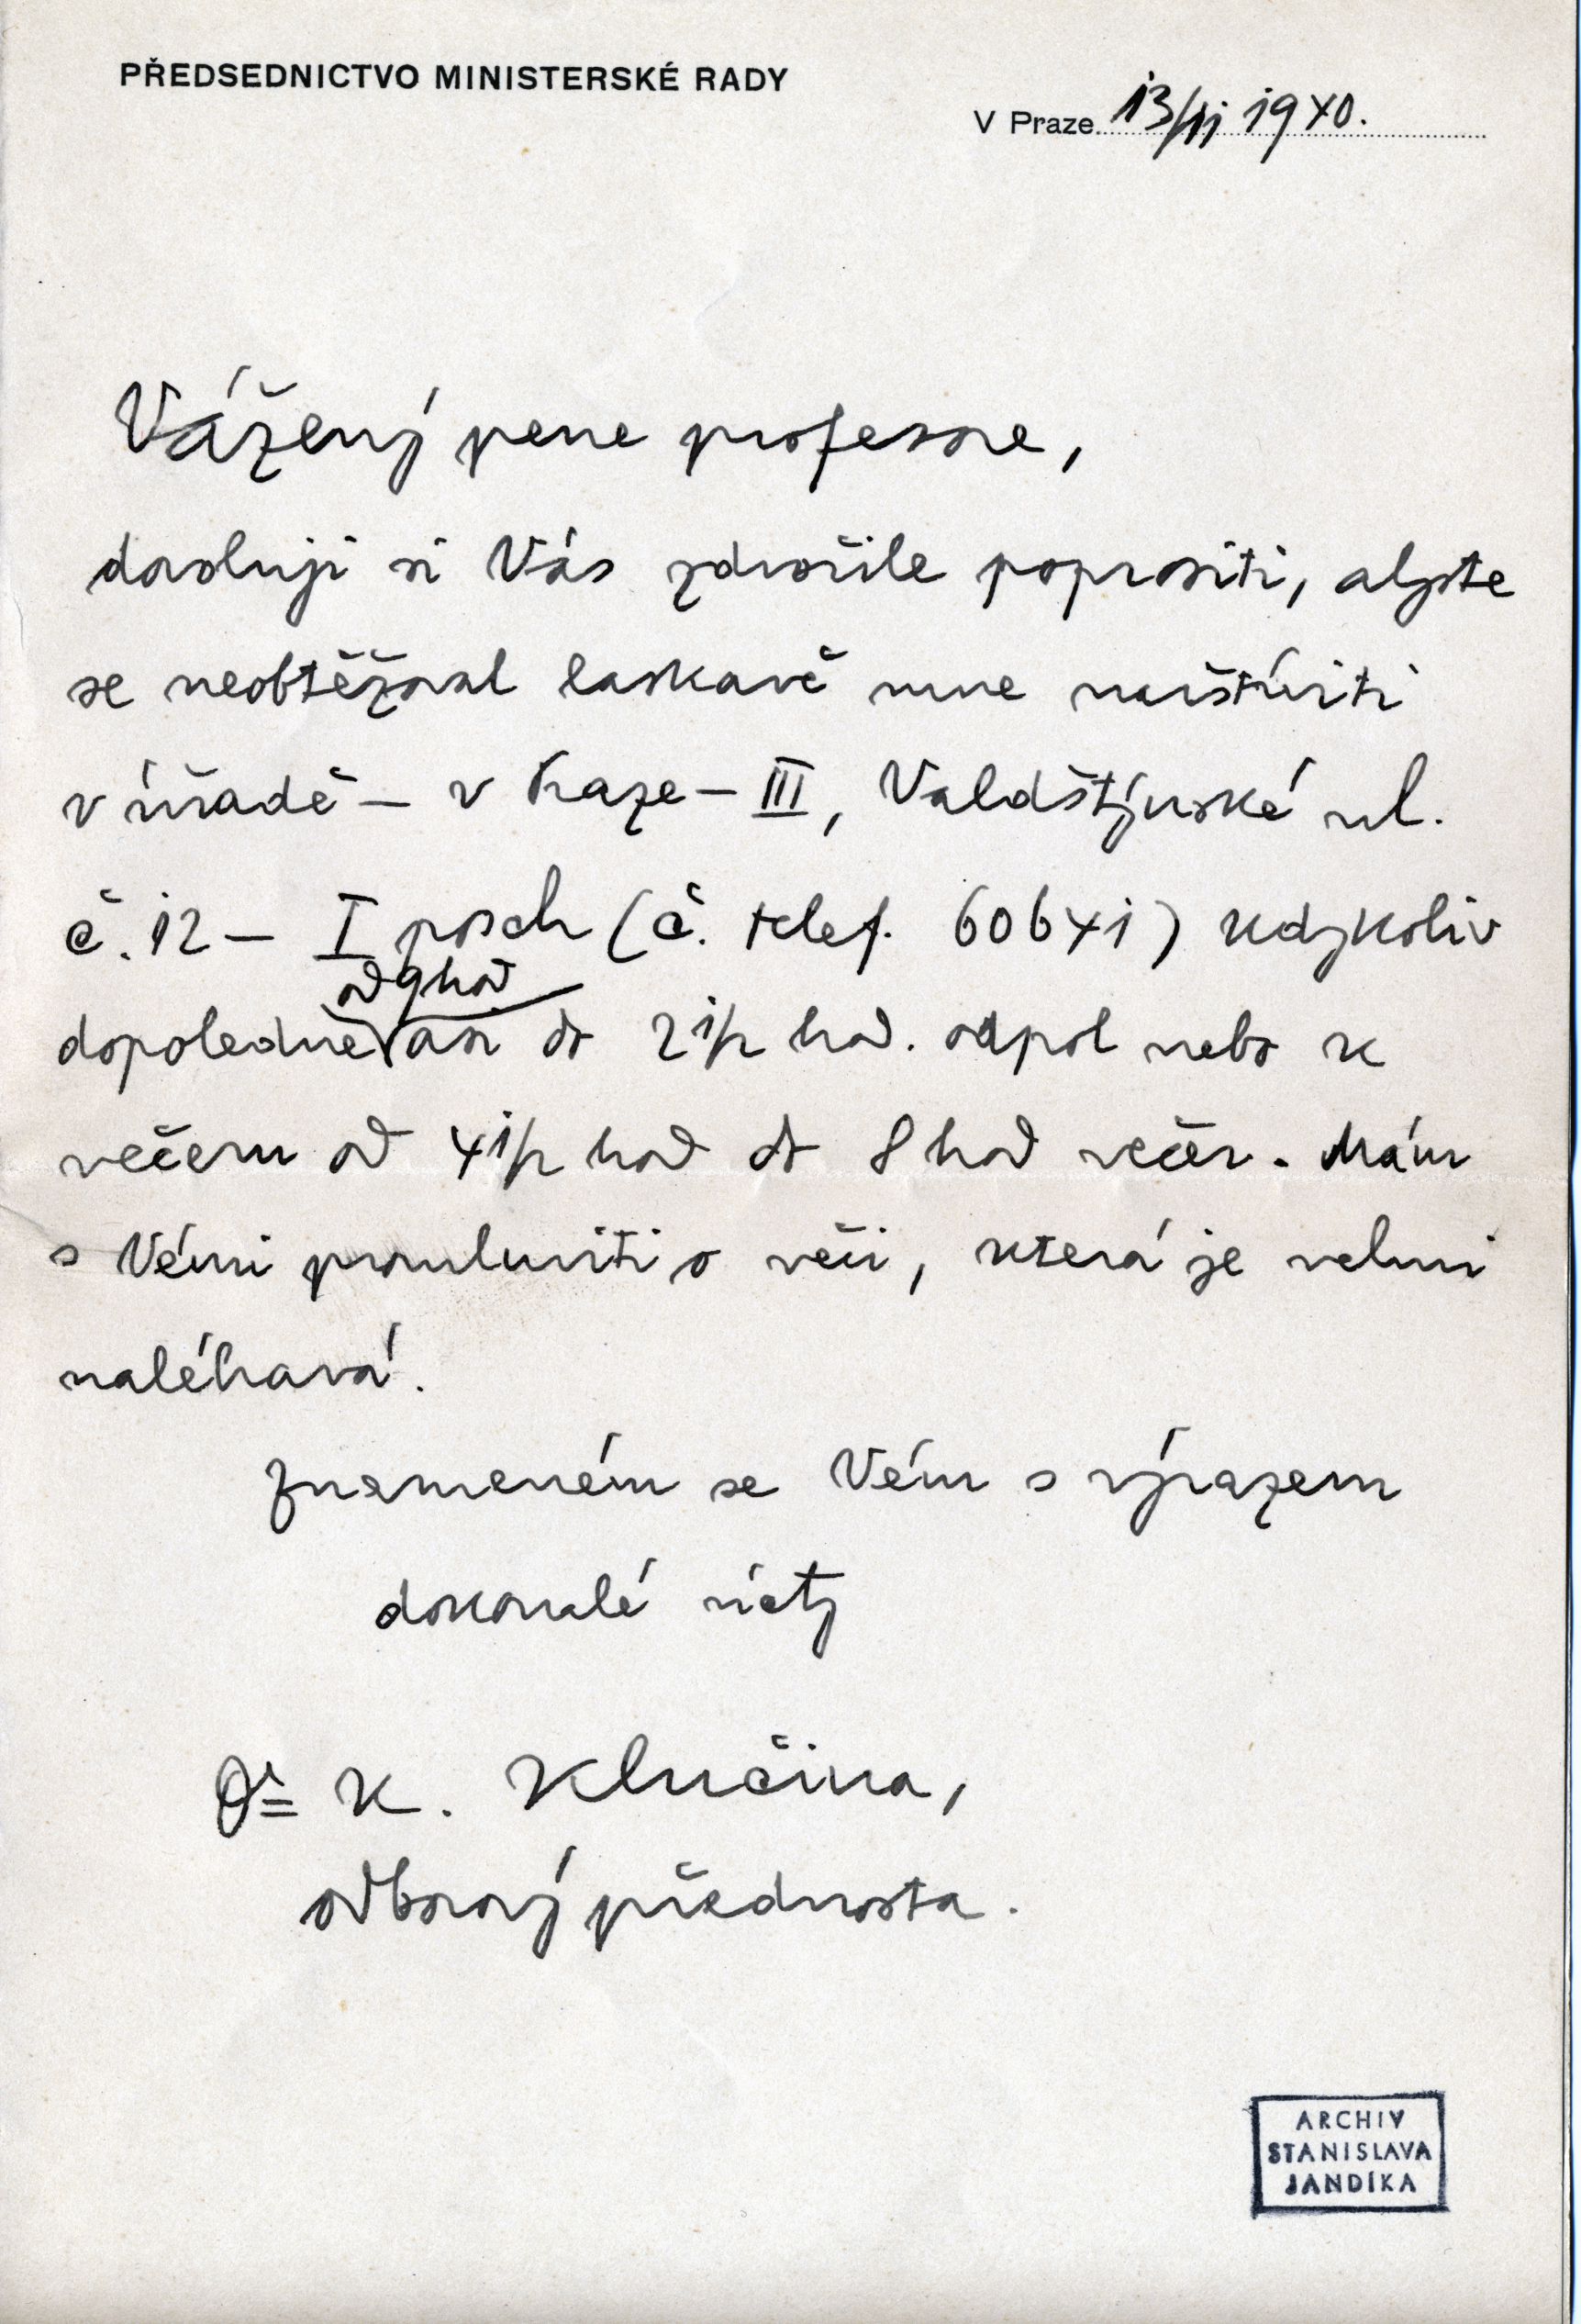 PŘEDSEDNICTVO MINISTERSKÉ RADY
V Praze 13/II 1940.
Vážený pane profesore,
dovoluji si Vás zdvořile poprositi, abyste
se neobtěžoval laskavě mne navštíviti
v úřadě – v Praze – III, Valdštýnské ul.
č. 12 – I posch (č. telef. 60641) kdykoliv
od 9 hod
dopoledne asi do 2 1/2 hod. odpol nebo k
večeru od 4 1/2 hod do 8 hod večer. Mám
s Vámi promluviti o věci, která je velmi
naléhavá.
Znamenám se Vám s výrazem
dokonalé úcty
Dr K. Klučina,
odborový přednosta.
ARCHIV
STANISLAVA
JANDÍKA